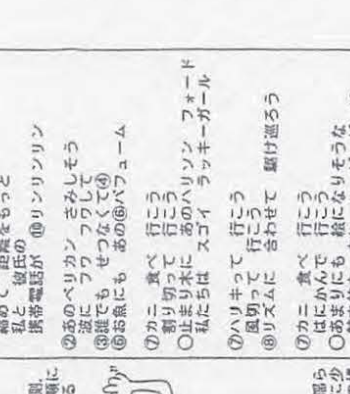 縮めて 距離をもっと
私と 彼氏の
携帯電話が ⑩リンリンリン
②あのペリカン さみしそう
波に フワ フワして
③誰でも せつなくて④
⑤お魚にも あの⑥パフューム
⑦カニ 食べ 行こう
割り切って 行こう
○止まり木に あのハリソン フォード
私たちは スゴイ ラッキーガール
⑦ハリキって 行こう
風切って 行こう
⑧リズムに 合わせて 駆け巡ろう
⑦カニ 食べ 行こう
はにかんで 行こう
○あまりにも 絵になりそうな